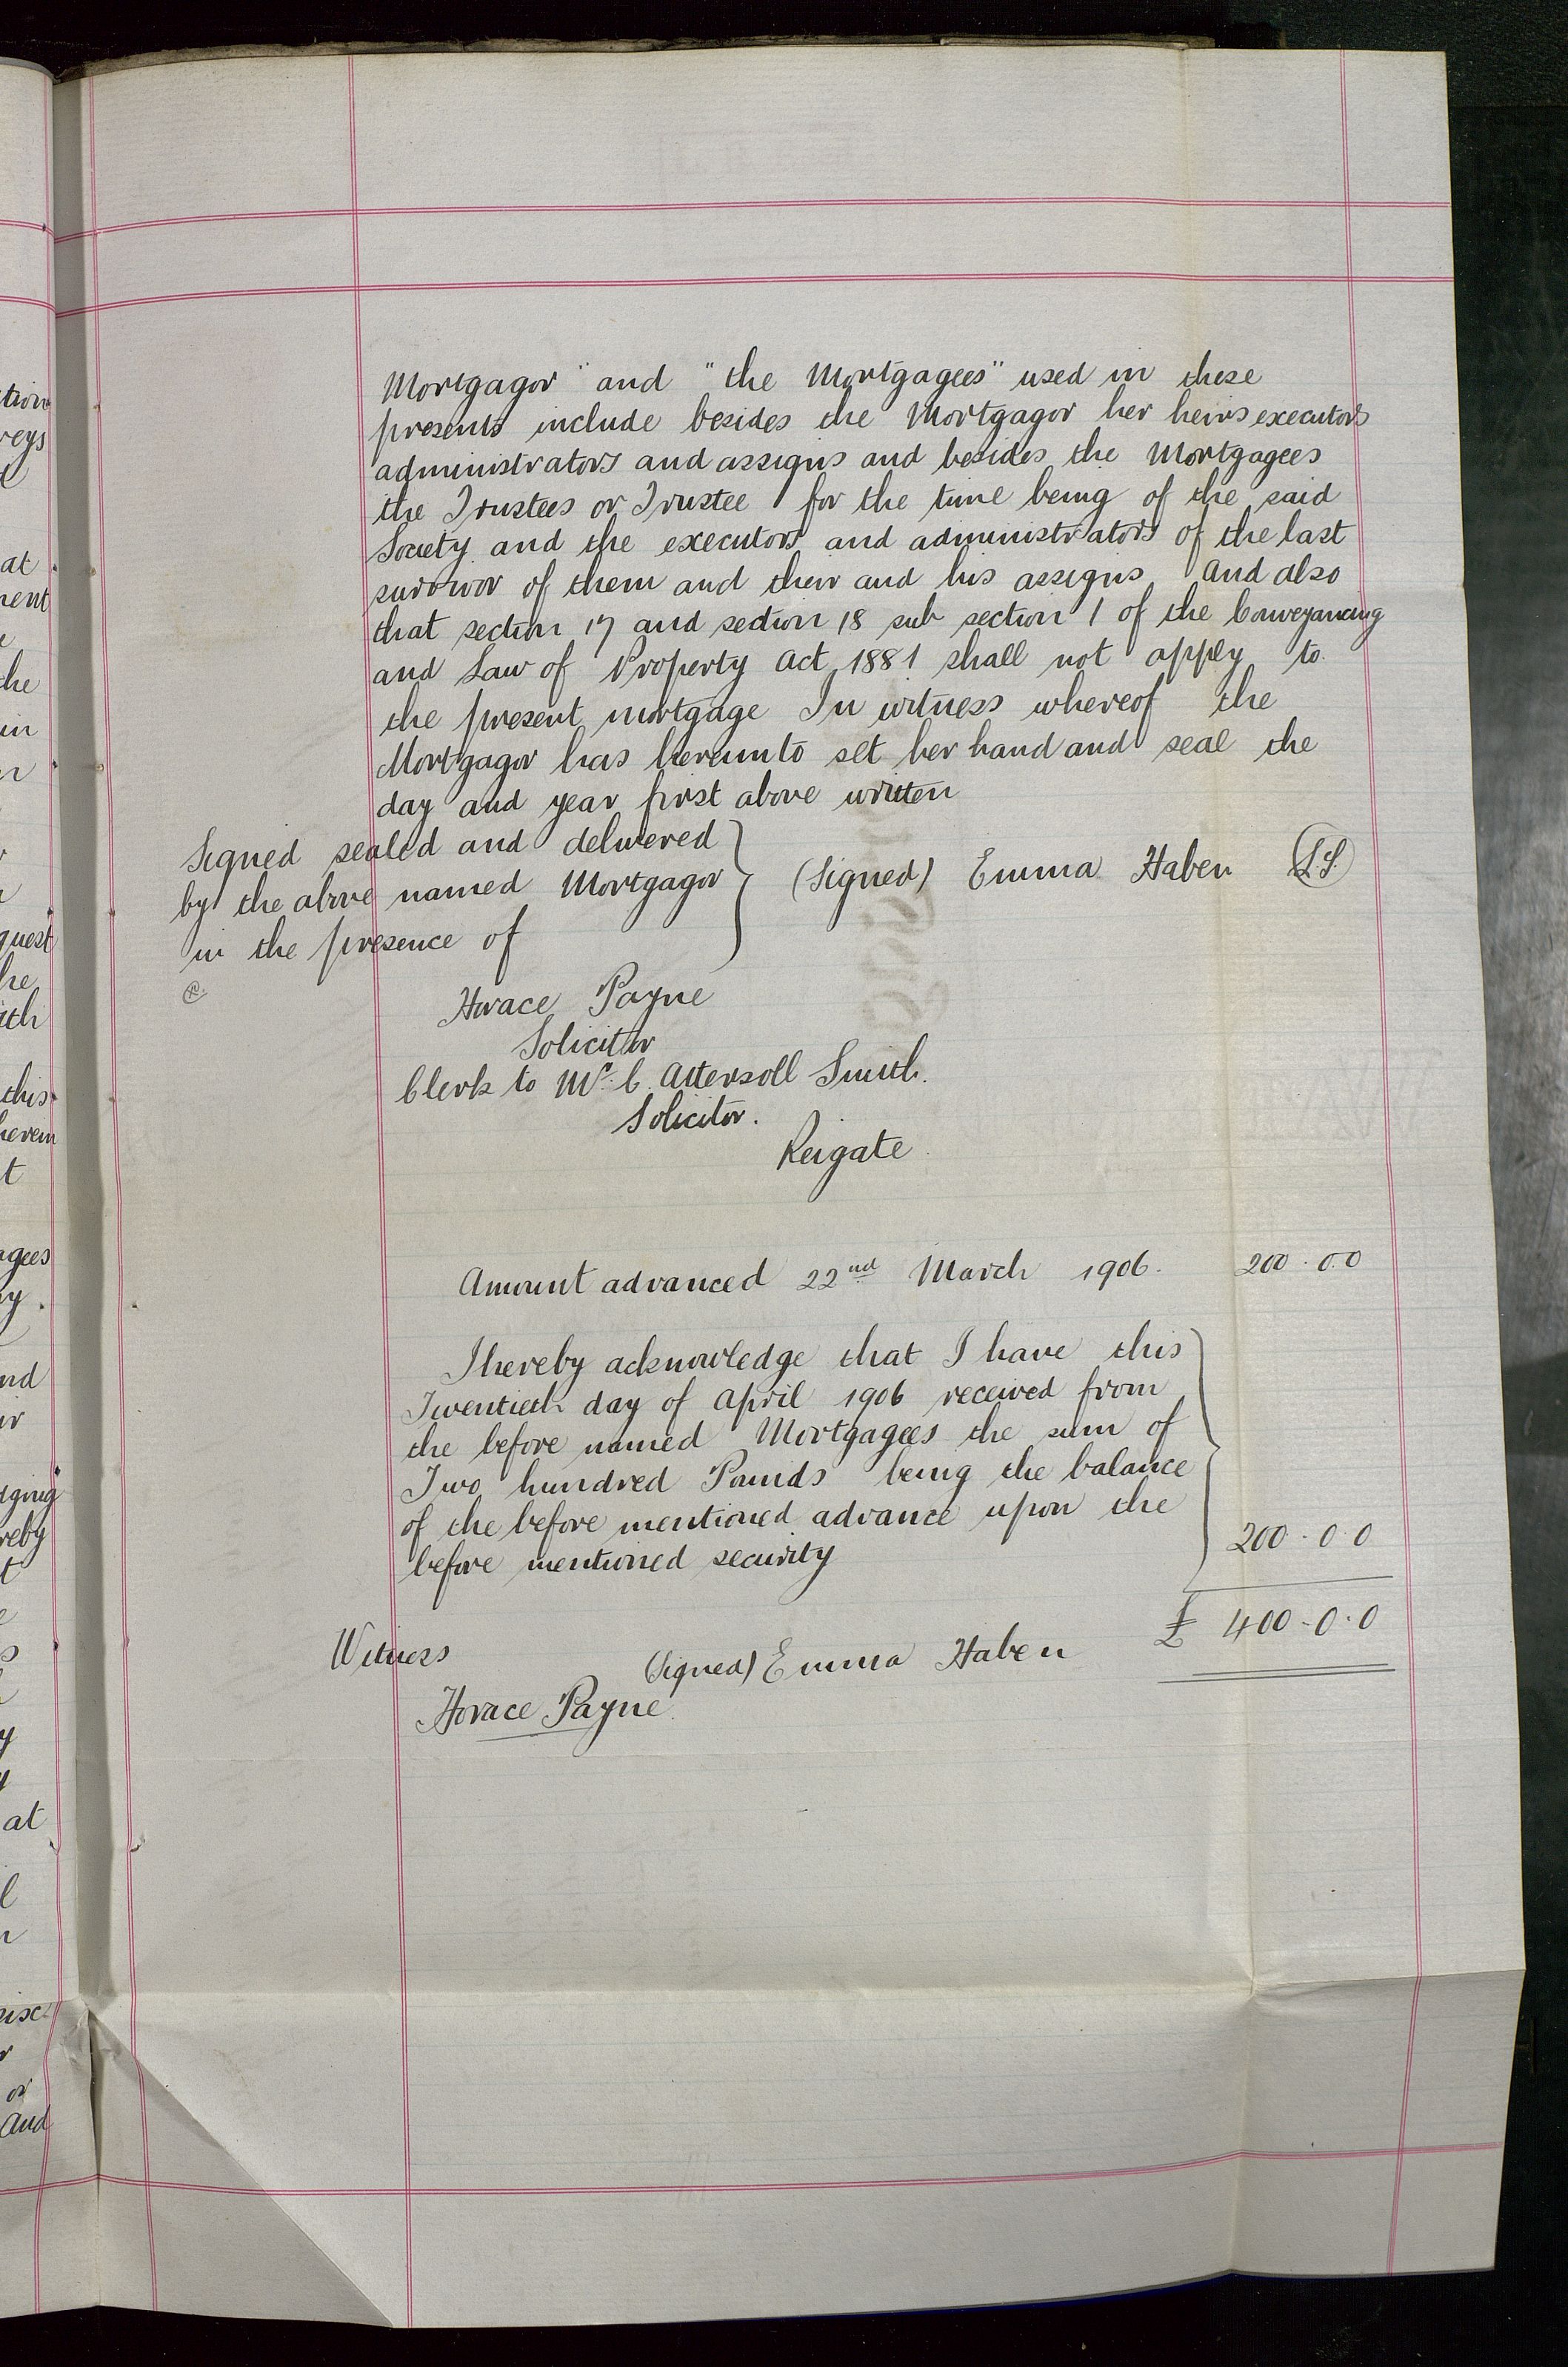 Mortgagor" and "the Mortgagees" used in these
presents include besides the Mortgagor her heirs executors
administrators and assigns and besides the Mortgagees
the Trustees or Trustee for the time being of the said
Society and the executors and administrators of the last
survivor of them and their and his assigns And also
that section 17 and section 18 sub section 1 of the Conveyancing
and Law of Property Act 1881 shall not apply to
the present mortgage In witness whereof the
Mortgagor has hereunto set her hand and seal the
day and year first above written
Signed sealed and delivered
by the above named Mortgagor (Signed) Emma Haben L.S.
in the presence of
Horace Payne
Solicitor
Clerk to Mr. C. Attersoll Smith.
Solicitor.
Reigate
Amount advanced 22nd March 1906. 200 . 0.0
I hereby acknowledge that I have this
Twentieth day of April 1906 received from
the before named Mortgagees the sum of
Two hundred Pounds being the balance
of the before mentioned advance upon the
before mentioned security 200 . 0.0
£ 400 . 0 . 0
Witness (Signed) Emma Haben
Horace Payne